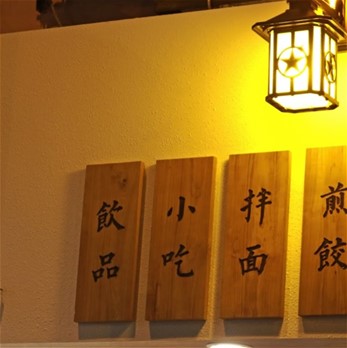 飲品
小吃
拌面
煎餃